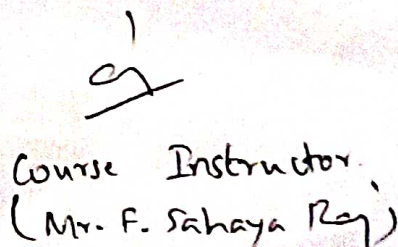 Course Instructor.
(Mr. F. Sahaya Raj)